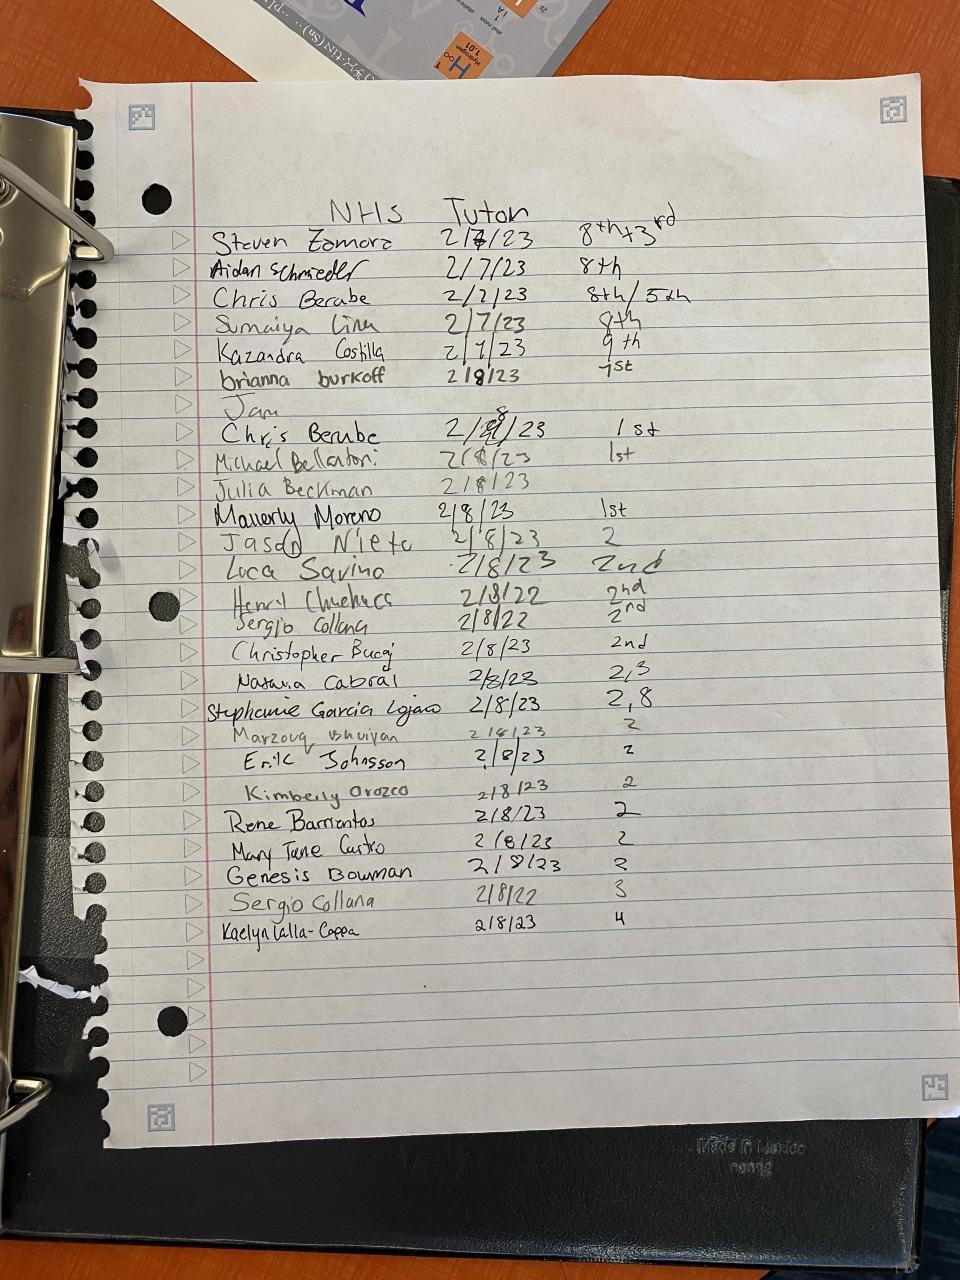 Hydrogen
1.01
H
NHS Tutor
Steven Zamora 2/7/23 8th+3rd
Aidan Schmieder 2/7/23 8th
Chris Berube 2/7/23 8th/5th
Sumaiya 2/7/23 8th
Kazandra Costilla 2/7/23 9th
brianna burkoff 2/8/23 1st
Jan
Chris Berube 2/8/23 1st
Michael Bellantoni 2/8/23 1st
Julia Beckman 2/8/23
Mallerly Moreno 2/8/23 1st
Jason Nieto 2/8/23 2
Luca Savino 2/8/23 2nd
2/8/22 2nd
Sergio Collana 2/8/22 2nd
Christopher 2/8/23 2nd
Cabral 2/8/23 2,3
Stephanie Garcia Lojano 2/8/23 2,8
Marzouq Bhuiyan 2/8/23 2
Erik Johnsson 2/8/23 2
Kimberly Orozco 2/8/23 2
Rene Barrientos 2/8/23 2
Mary Jane Castro 2/8/23 2
Genesis Bowman 2/8/23 2
Sergio Collana 2/8/22 3
Kaelyn Lalla-Coppa 2/8/23 4
Made in Mexico